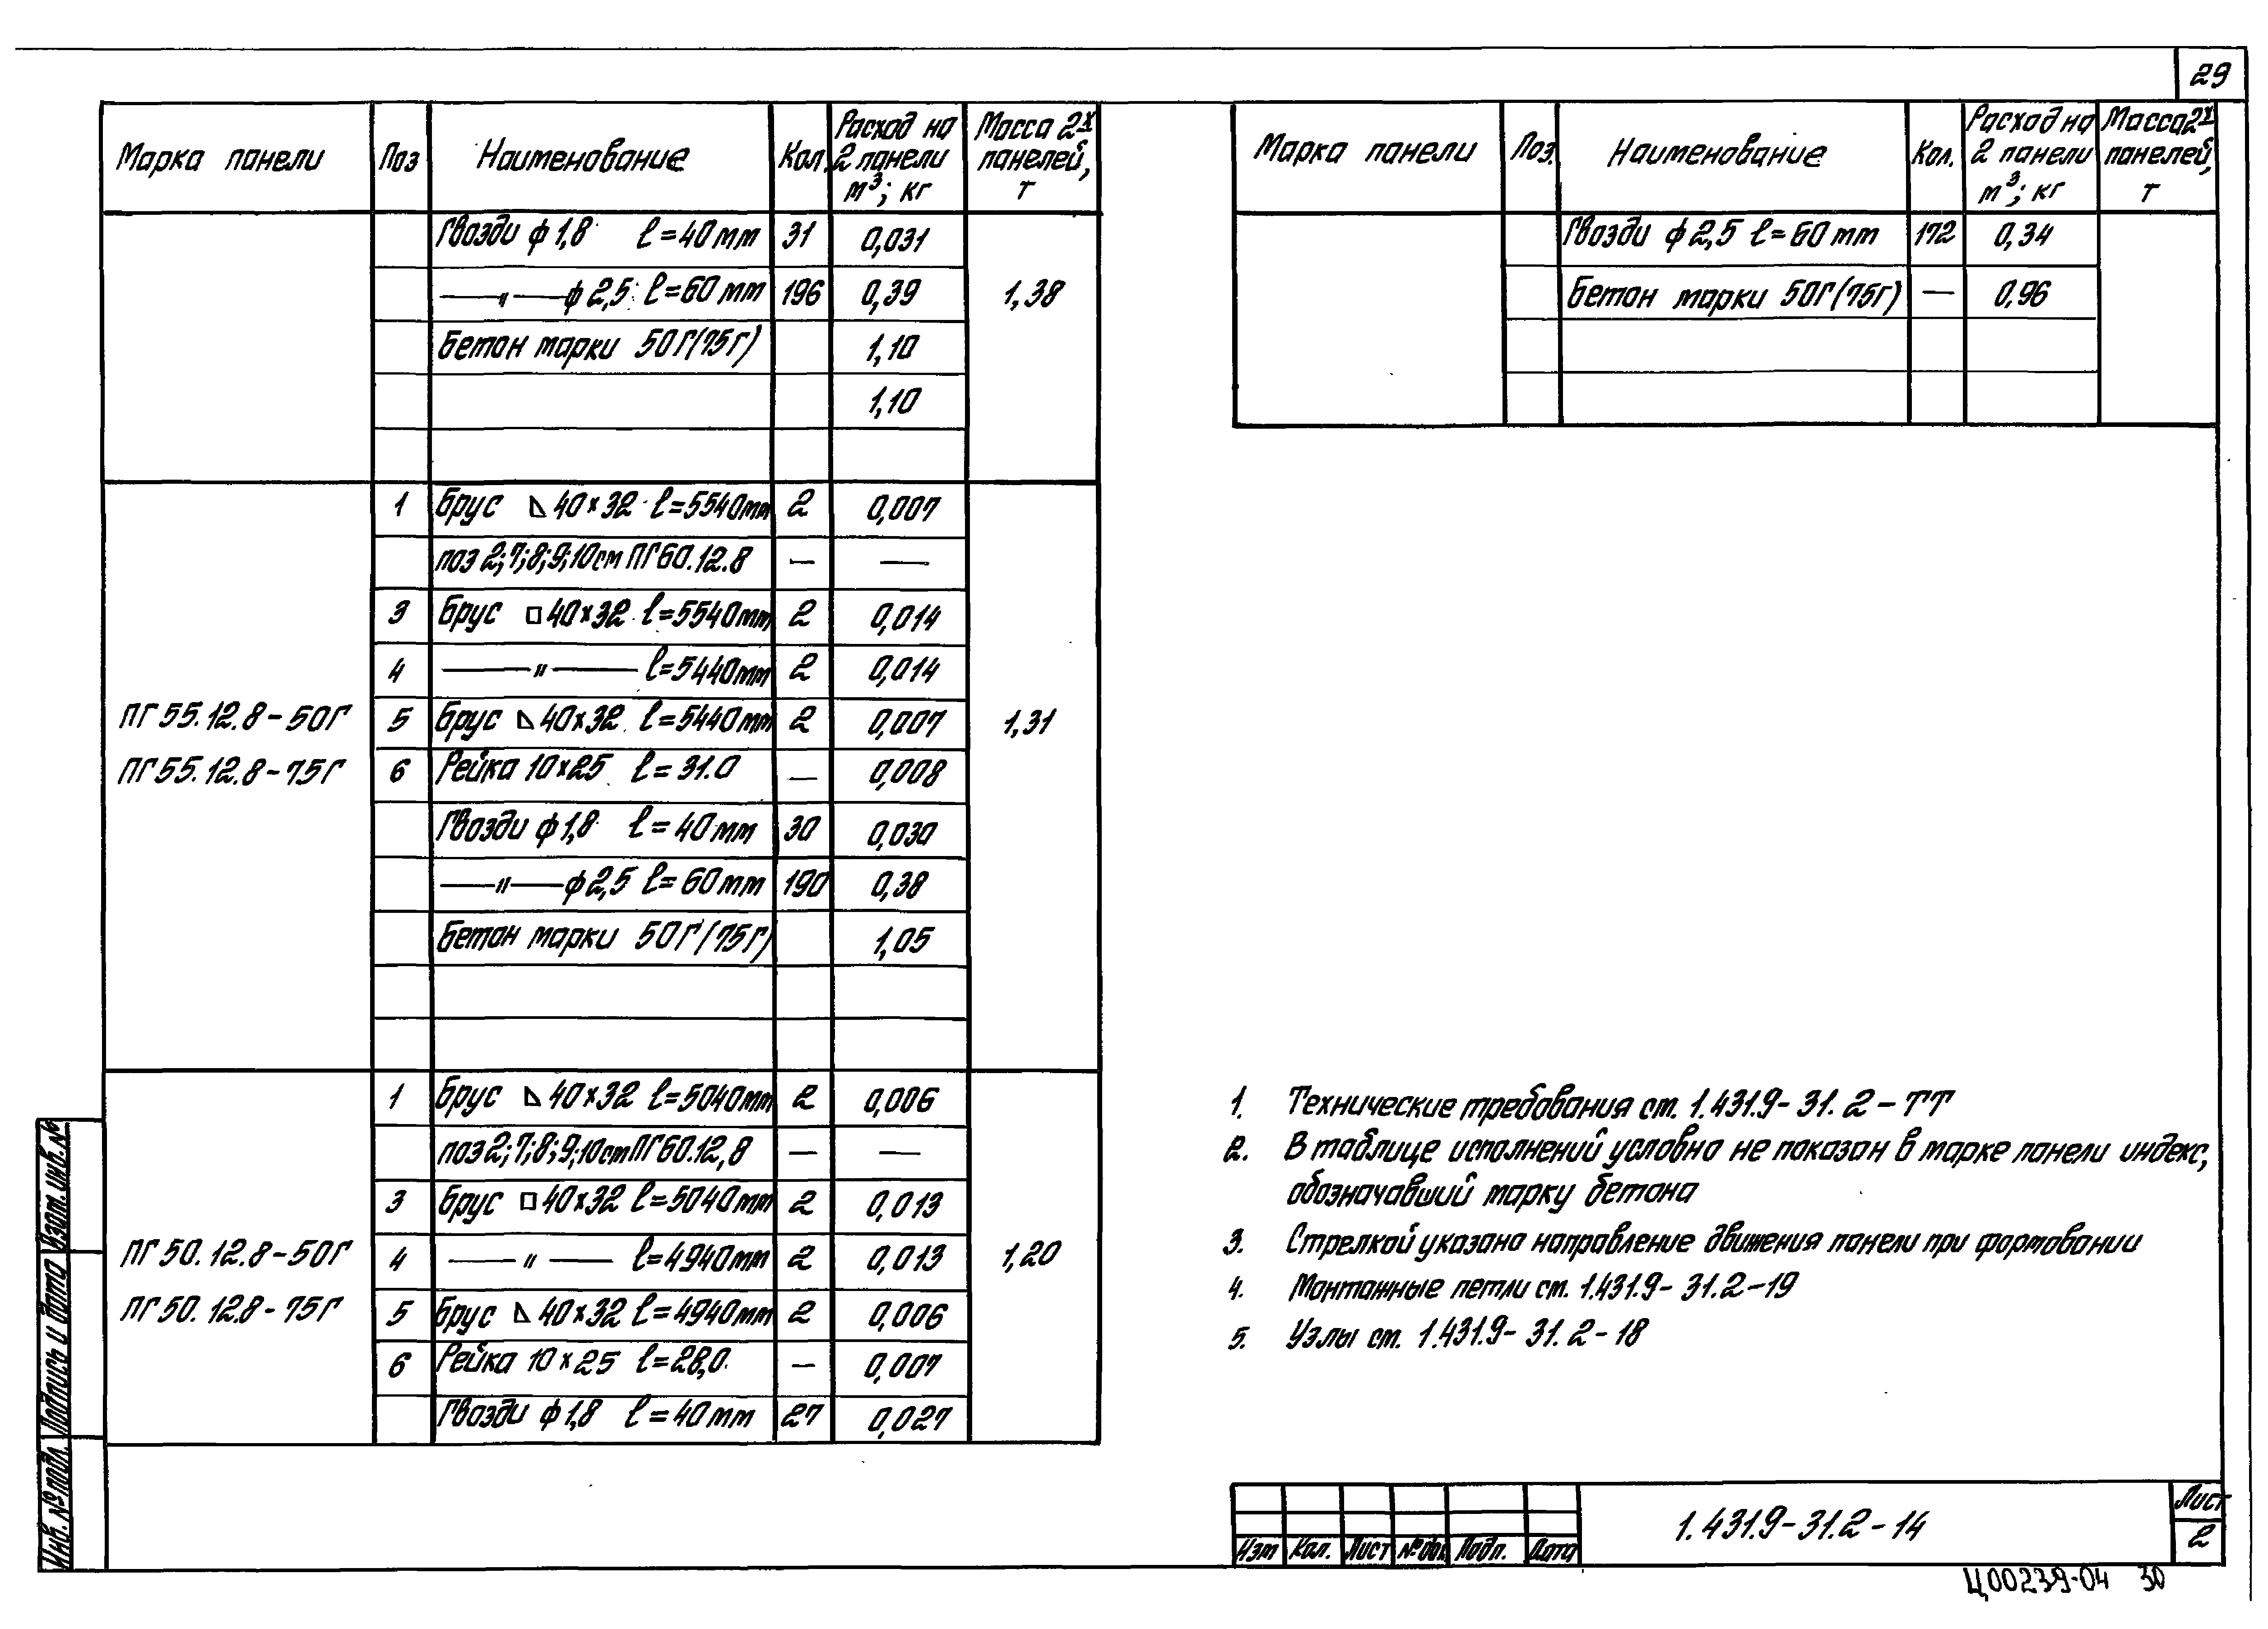 29
Марка панели Поз Наименование Кол. Расход на 2 панели м³; кг Масса 2х панелей, т
Гвозди ф 1,8 ℓ=40мм 31 0,031
—〃— ф 2,5 ℓ=60мм 196 0,39 1,38
Бетон марки 50Г(75Г) 1,10
1,10
ПГ55.12.8-50Г
ПГ55.12.8-75Г
1,31
1 Брус ◺ 40×32 ℓ=5540мм 2 0,007
поз 2;7;8;9;10 см ПГ60.12.8 — —
3 Брус □ 40×32 ℓ=5540мм 2 0,014
4 —〃— ℓ=5440мм 2 0,014
5 Брус ◺ 40×32 ℓ=5440мм 2 0,007
6 Рейка 10×25 ℓ=31.0 — 0,008
Гвозди ф 1,8 ℓ=40мм 30 0,030
—〃— ф 2,5 ℓ=60мм 190 0,38
Бетон марки 50Г(75Г) 1,05
ПГ50.12.8-50Г
ПГ50.12.8-75Г
1,20
1 Брус ◺ 40×32 ℓ=5040мм 2 0,006
поз 2;7;8;9;10 см ПГ60.12,8 — —
3 Брус □ 40×32 ℓ=5040мм 2 0,013
4 —〃— ℓ=4940мм 2 0,013
5 Брус ◺ 40×32 ℓ=4940мм 2 0,006
6 Рейка 10×25 ℓ=28,0 — 0,007
Гвозди ф 1,8 ℓ=40мм 27 0,027
Марка панели Поз. Наименование Кол. Расход на 2 панели м³; кг Масса 2х панелей, т
Гвозди ф 2,5 ℓ=60мм 172 0,34
Бетон марки 50Г(75Г) — 0,96
1. Технические требования см. 1.431.9-31.2-ТТ
2. В таблице исполнений условно не показан в марке панели индекс,
обозначавший марку бетона
3. Стрелкой указано направление движения панели при формовании
4. Монтажные петли см. 1.431.9-31.2-19
5. Узлы см. 1.431.9-31.2-18
Изм Кол. Лист №док Подп. Дата
1.431.9-31.2-14
Лист
2
Ц00239-04 30
Инв. № подл. Подпись и дата Взам. инв. №